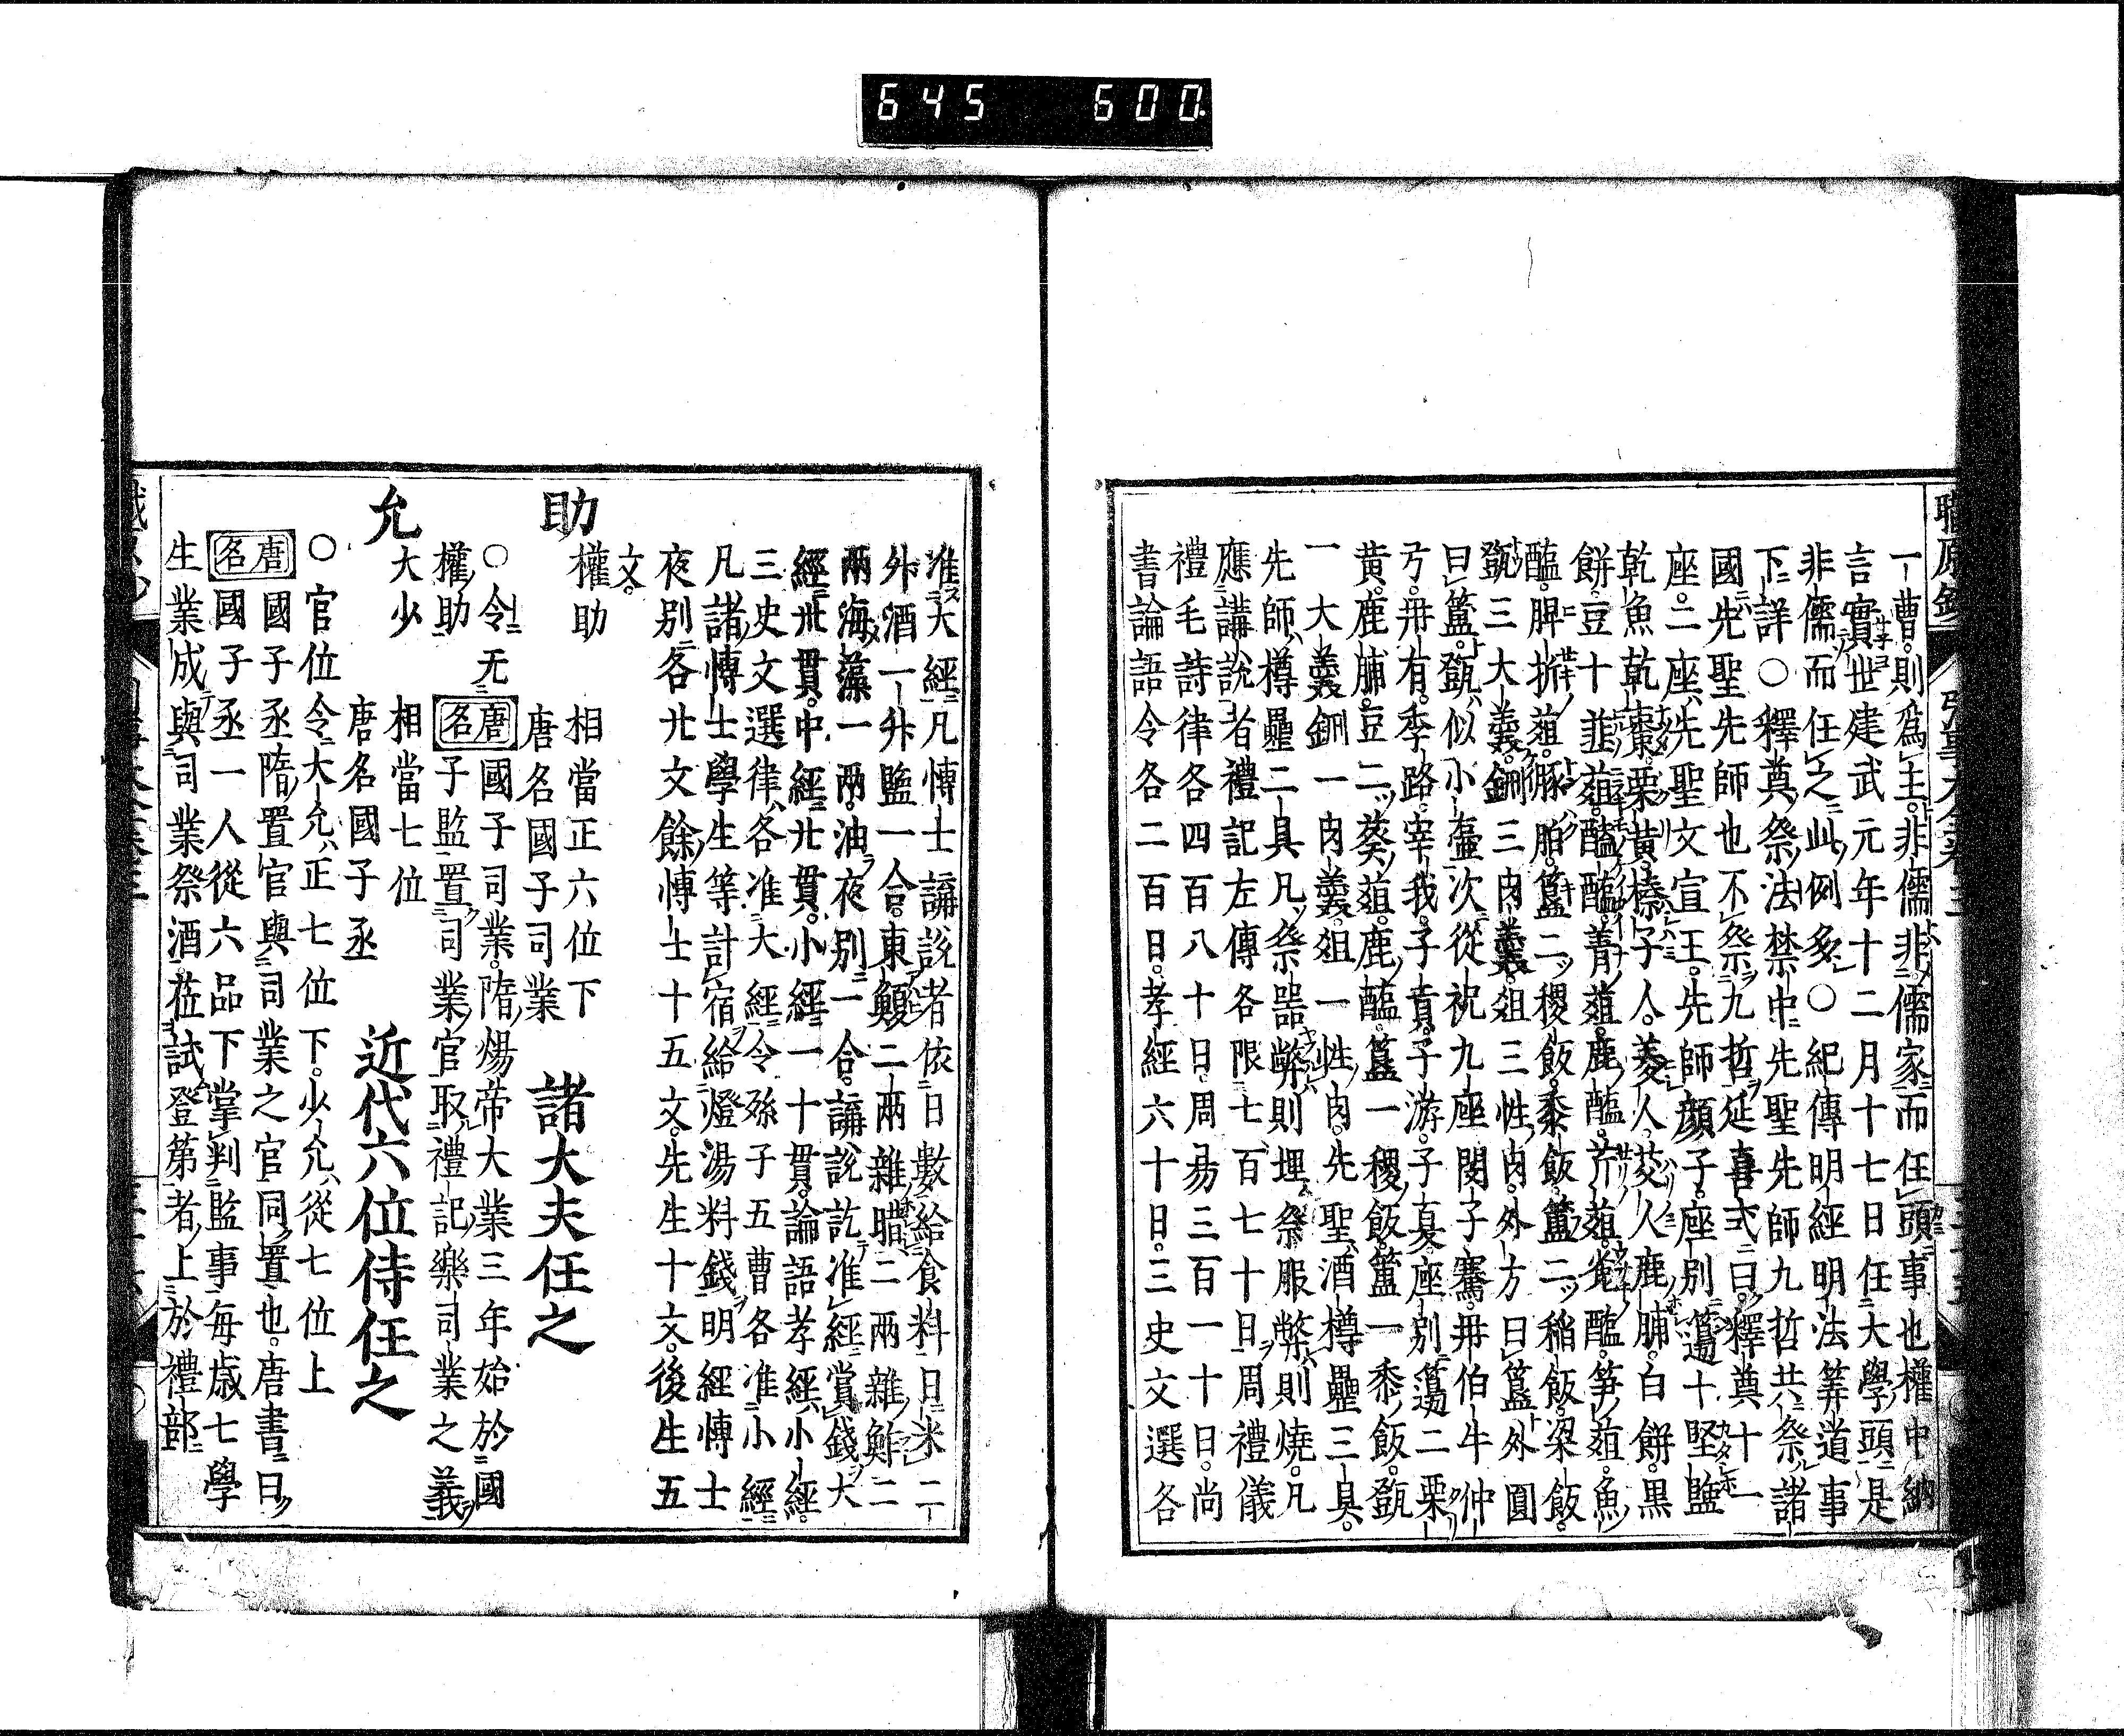 645 600
一曹則爲王非儒非儒家而任頭事也權中納
言實世建武元年十二月十七日任大學頭是
非儒而任之此例多○紀傳明經明法筭道事
下詳○釋奠祭法禁中先聖先師九哲共祭諸
國先聖先師也不祭九哲延喜式曰釋奠十一
座二座先聖文宣王先師顏子座別籩十堅鹽
乾魚乾棗栗黃榛子人菱人芡人鹿脯白餅黑
餅豆十韮葅醓醢菁葅鹿醢芹葅兔醢笋葅魚
醢脾析葅豚胉簋二稷飯黍飯簠二稻飯粱飯
㽅三大羹鉶三肉羹俎三牲肉外方曰簠外圓
曰簋㽅似小壺次從祀九座閔子騫冉伯牛仲
弓冉有季路宰我子貢子游子夏座別籩二栗
黃鹿脯豆二葵葅鹿醢簋一稷飯簠一黍飯㽅
一大羹鉶一肉羹俎一牲肉先聖酒樽罍三具
先師樽罍二具凡祭器弊則埋祭服幣則燒凡
應講說者禮記左傳各限七百七十日周禮儀
禮毛詩律各四百八十日周易三百一十日尚
書論語令各二百日孝經六十日三史文選各
准大經凡博士講說者依日數給食料日米二
外酒一升鹽一合東鰒二兩雜腊二兩雜鮓二
兩海藻一兩油夜別一合講說訖准經賞錢大
經卅貫中經廿貫小經一十貫論語孝經小經
三史文選律各准大經令孫子五曹各准小經
凡諸博士學生等計宿給燈湯料錢明經博士
夜別各廿文餘博士十五文先生十文後生五
文
助 權助 相當正六位下 唐名國子司業 諸大夫任之
○令无唐名國子司業隋煬帝大業三年始於國
權助 子監置司業官取禮記樂司業之義
允 大少 相當七位 唐名國子丞 近代六位侍任之
○官位令大允正七位下少允從七位上
唐名國子丞隋置官與司業之官同置也唐書曰
國子丞一人從六品下掌判監事每歲七學
生業成與司業祭酒莅試登第者上於禮部